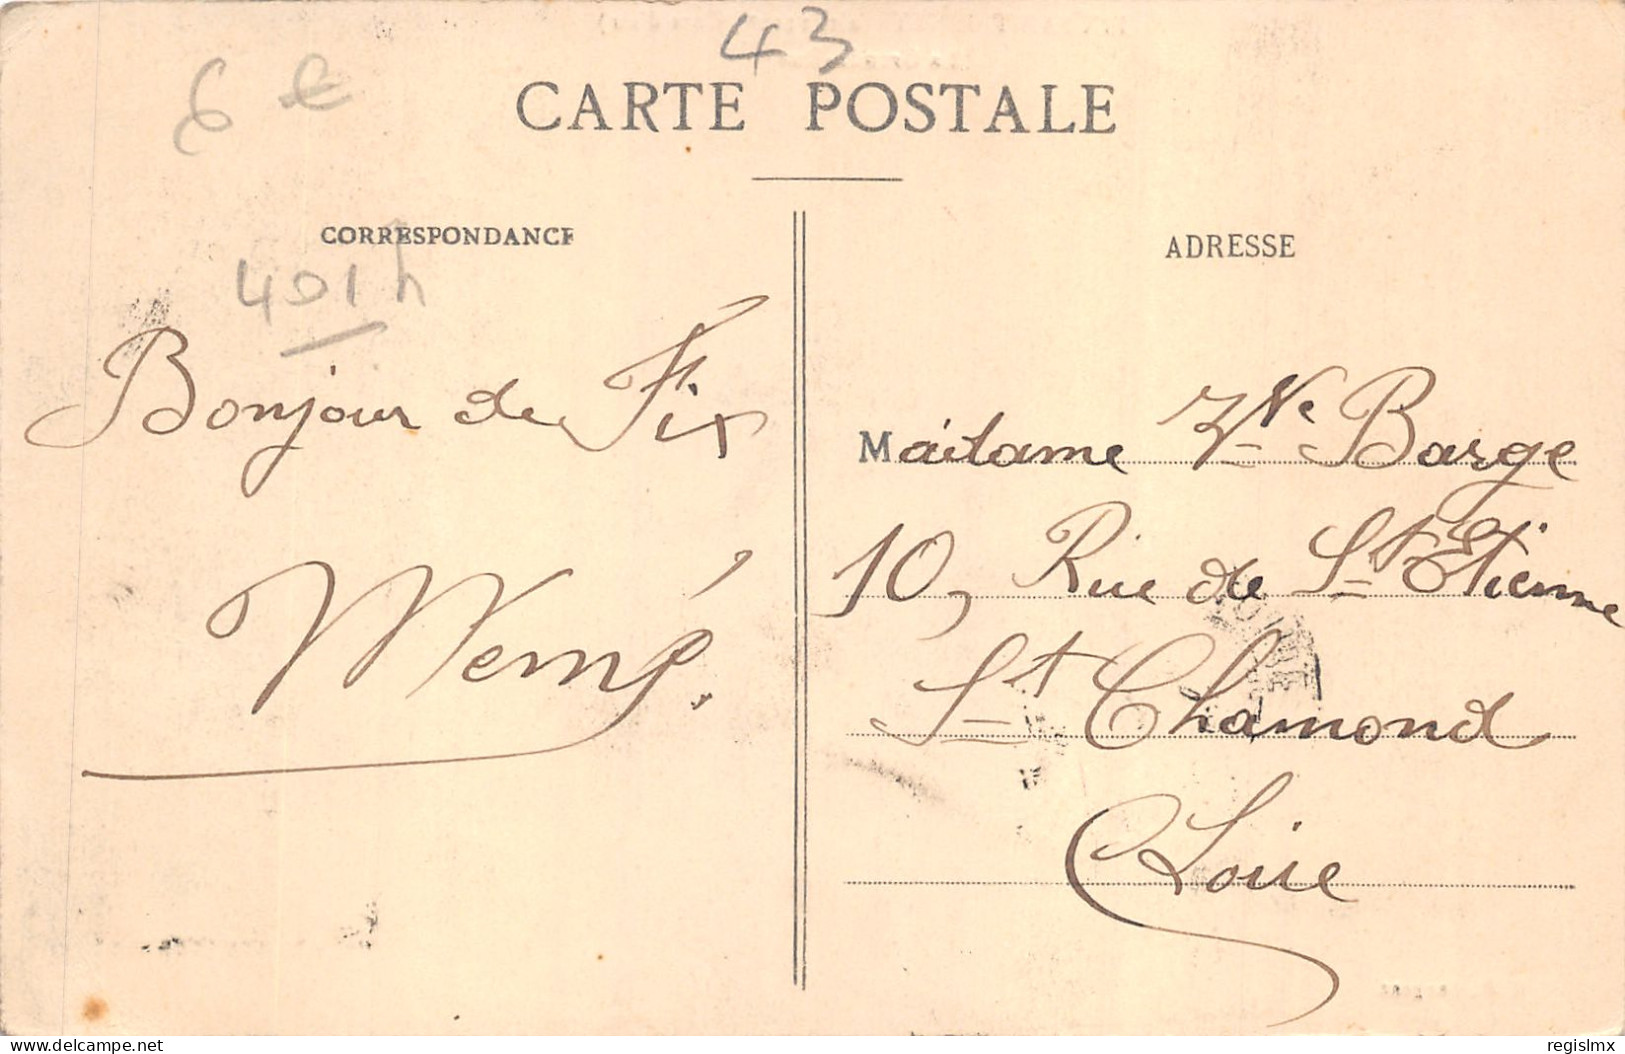 43
6 €
CARTE POSTALE
CORRESPONDANCE
ADRESSE
401h
Bonjour de Fix
Madame Vve Barge
10, Rue de St Etienne
St Chamond
Loire
delcampe.net
regislmx